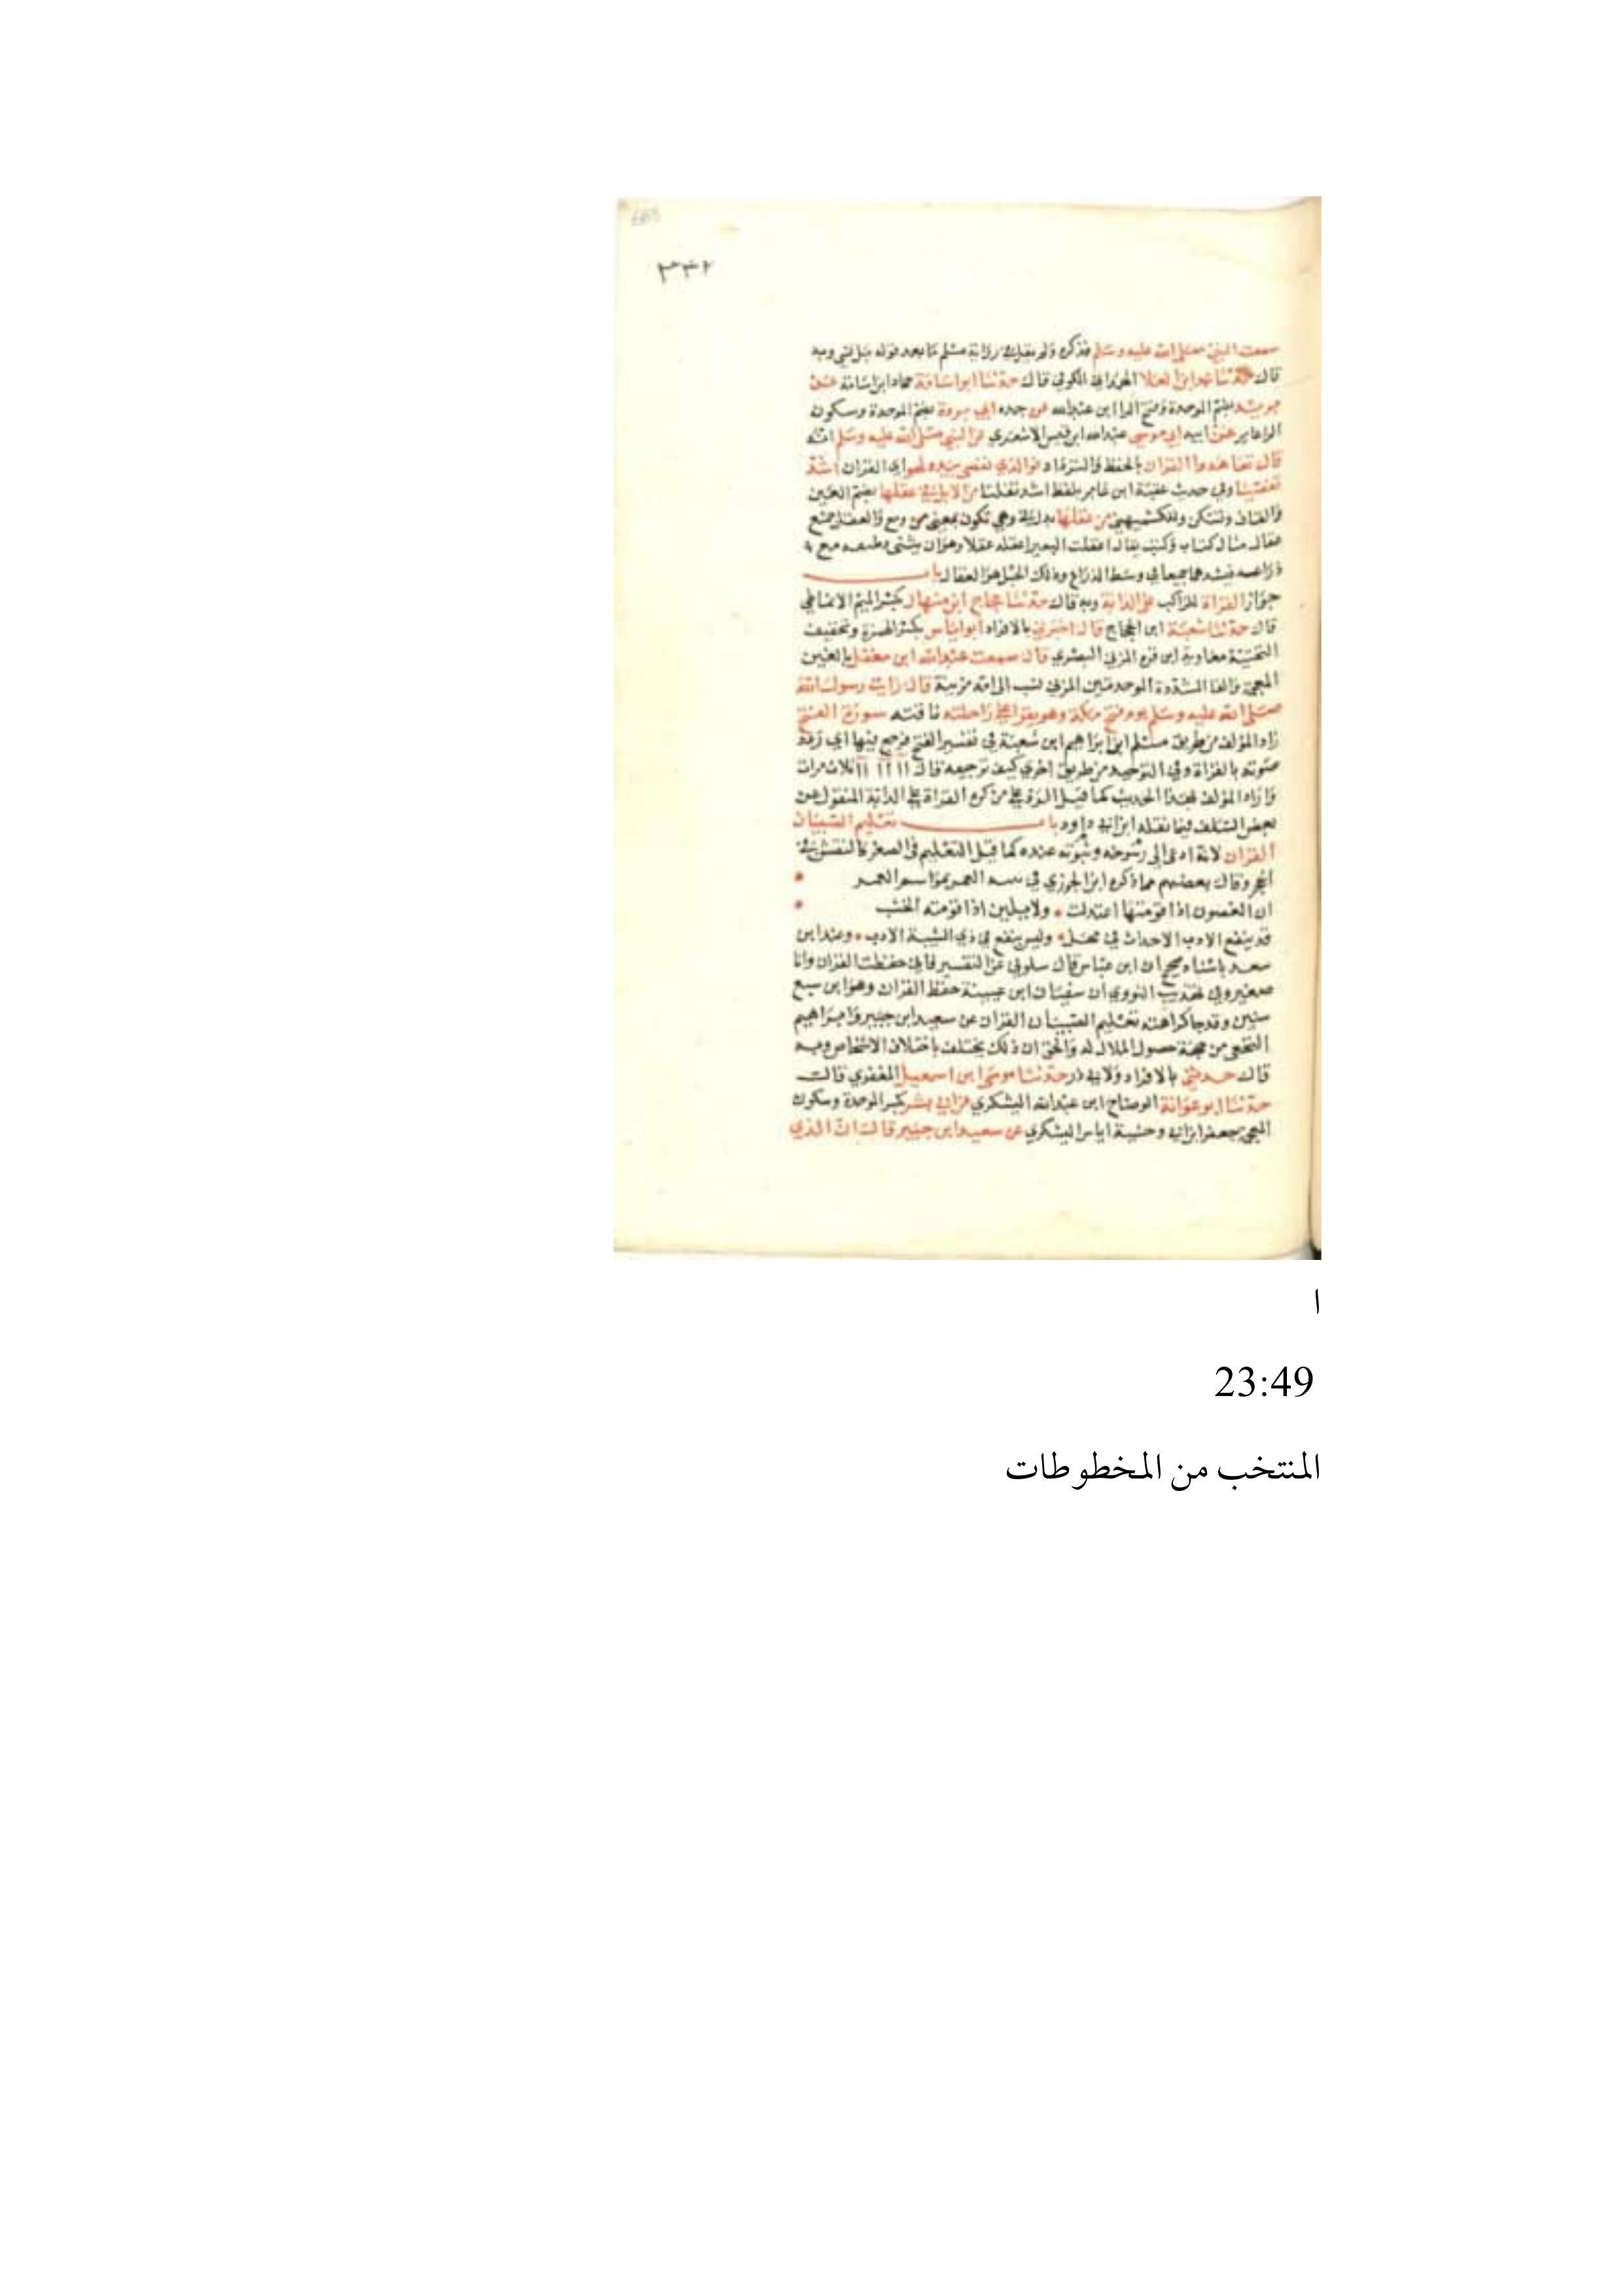 ٣٣٢
سمعت النبي صلى الله عليه وسلم فذكره ولم يقل في رواية مسلم ما بعد قوله بل نسي وبه
قال حدثنا محمد ابن العلا الهمداني الكوفي قال حدثنا ابو اسامة حماد ابن اسامة عن
بريد بضم الموحدة وفتح الرا ابن عبدالله عن جده ابي بردة بضم الموحدة وسكون
الرا عامر عن ابيه ابي موسى عبدالله ابن قيس الاشعري عن النبي صلى الله عليه وسلم انه
قال تعاهدوا القران بالحفظ والترداد فوالذي نفسي بيده لهو اي القران اشد
تفصيا وفي حديث عقبة ابن عامر بلفظ اشد تفلتا من الابل في عقلها بضم العين
والقاف وتسكن وللكشميهني من عقلها بدل في وهي تكون بمعنى من ومع والعقل جمع
عقال مثال كتاب وكتب يقال اعقلت البعير اعقله عقلا وهو ان يثنى وظيفه مع
ذراعه فيشدهما جميعا في وسط الذراع وذلك الحبل هو العقال باب
جواز القراة للراكب على الدابة وبه قال حدثنا حجاج ابن منهال بكسر الميم الانماطي
قال حدثنا شعبة ابن الحجاج قال اخبرني بالافراد ابو اياس بكسر الهمزة وتخفيف
التحتية معاوية ابن قرة المزني البصري قال سمعت عبدالله ابن مغفل بالغين
المعجمة والفا المشددة المفتوحتين المزني نسب الى امه مزينة قال رايت رسول الله
صلى الله عليه وسلم يوم فتح مكة وهو يقرا على راحلته ناقته سورة الفتح
زاد المؤلف من طريق مسلم ابن ابراهيم ابن شعبة في تفسير الفتح فرجع فيها اي ردد
صوته بالقراة وفي التوحيد من طريق اخري كيف ترجيعه قال ااا ثلاث مرات
وارا المؤلف بهذا الحديث كما قيل الرد على من كره القراة على الدابة المنقول عن
بعض السلف فيما نقله ابن ابي داود باب تعليم الصبيان
القران لانه ادعى الى رسوخه وثبوته عنده كما قيل التعليم في الصغر كالنقش في
الحجر وقال بعضهم مما ذكره ابن الجوزي في العمر بمواسم العمر
ان الغصون اذا قومتها اعتدلت * ولا يلين اذا قومته الخشب
قد ينفع الادب الاحداث في مهل * وليس ينفع في ذي الشيبة الادب * وعند ابن
سعد باسناد صحيح ان ابن عباس قال سلوني عن التفسير فاني حفظت القران وانا
صغير وفي تهذيب النووي ان سفيان ابن عيينة حفظ القران وهو ابن سبع
سنين وقد جا كراهته تعليم الصبيان القران عن سعيد ابن جبير وابراهيم
النخعي من جهة حصول الملال له والحق ان ذلك يختلف باختلاف الاشخاص وبه
قال حدثني بالافراد ولابي ذر حدثنا موسى ابن اسمعيل المنقري قال
حدثنا ابو عوانة الوضاح ابن عبدالله اليشكري عن ابي بشر بكسر الموحدة وسكون
المعجمة جعفر ابن ابي وحشية اياس اليشكري عن سعيد ابن جبير قال ان الذي
ا
23:49
المنتخب من المخطوطات